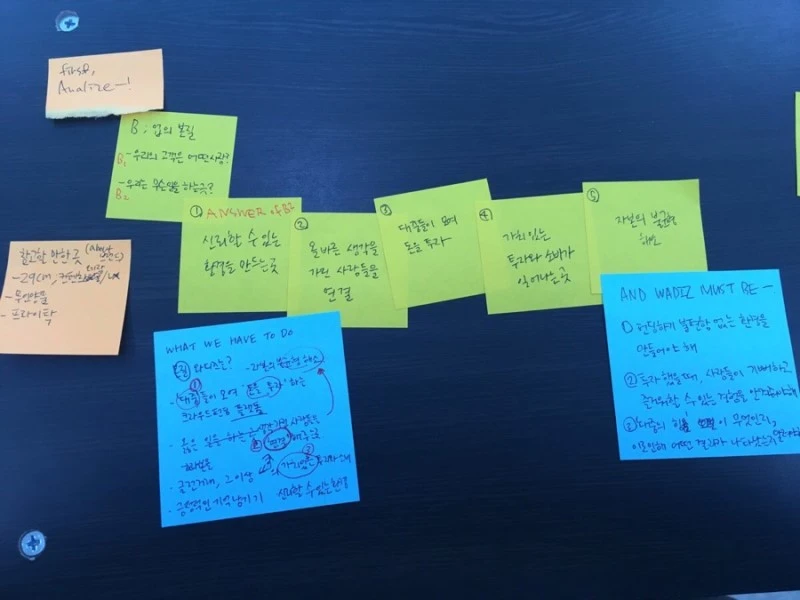 first,
Analize-!
B: 업의 본질
B1 - 우리의 고객은 어떤사람?
- 우리는 무슨일을 하는곳?
B2
① ANSWER of B2
신뢰할 수 있는
환경을 만드는곳
②
올바른 생각을
가진 사람들을
연결
③
대중들이 모여
돈을 투자
④
가치 있는
투자와 소비가
일어나는 곳
⑤
자본의 불균형
해소
참고할 만한 곳
- 29cm,
- 무인양품
- 프라이탁
WHAT WE HAVE TO DO
본질 와디즈는?
- 대중들이 모여 '돈을 투자' 하는
크라우드펀딩 플랫폼
- 옳은 일을 하는 사람들을
연결
- 금전거래, 그 이상의 가치있는 투자와 소비
- 긍정적인 기억 남기기 신뢰할 수 있는 환경
AND WADIZ MUST BE —
① 펀딩하기 불편함 없는 환경을
만들어야 해
② 투자 했을때, 사람들이 기뻐하고
즐거워할 수 있는 경험을 안겨줘야해
③ 대중의 힘이 무엇인지,
이로인해 어떤 결과가 나타났는지